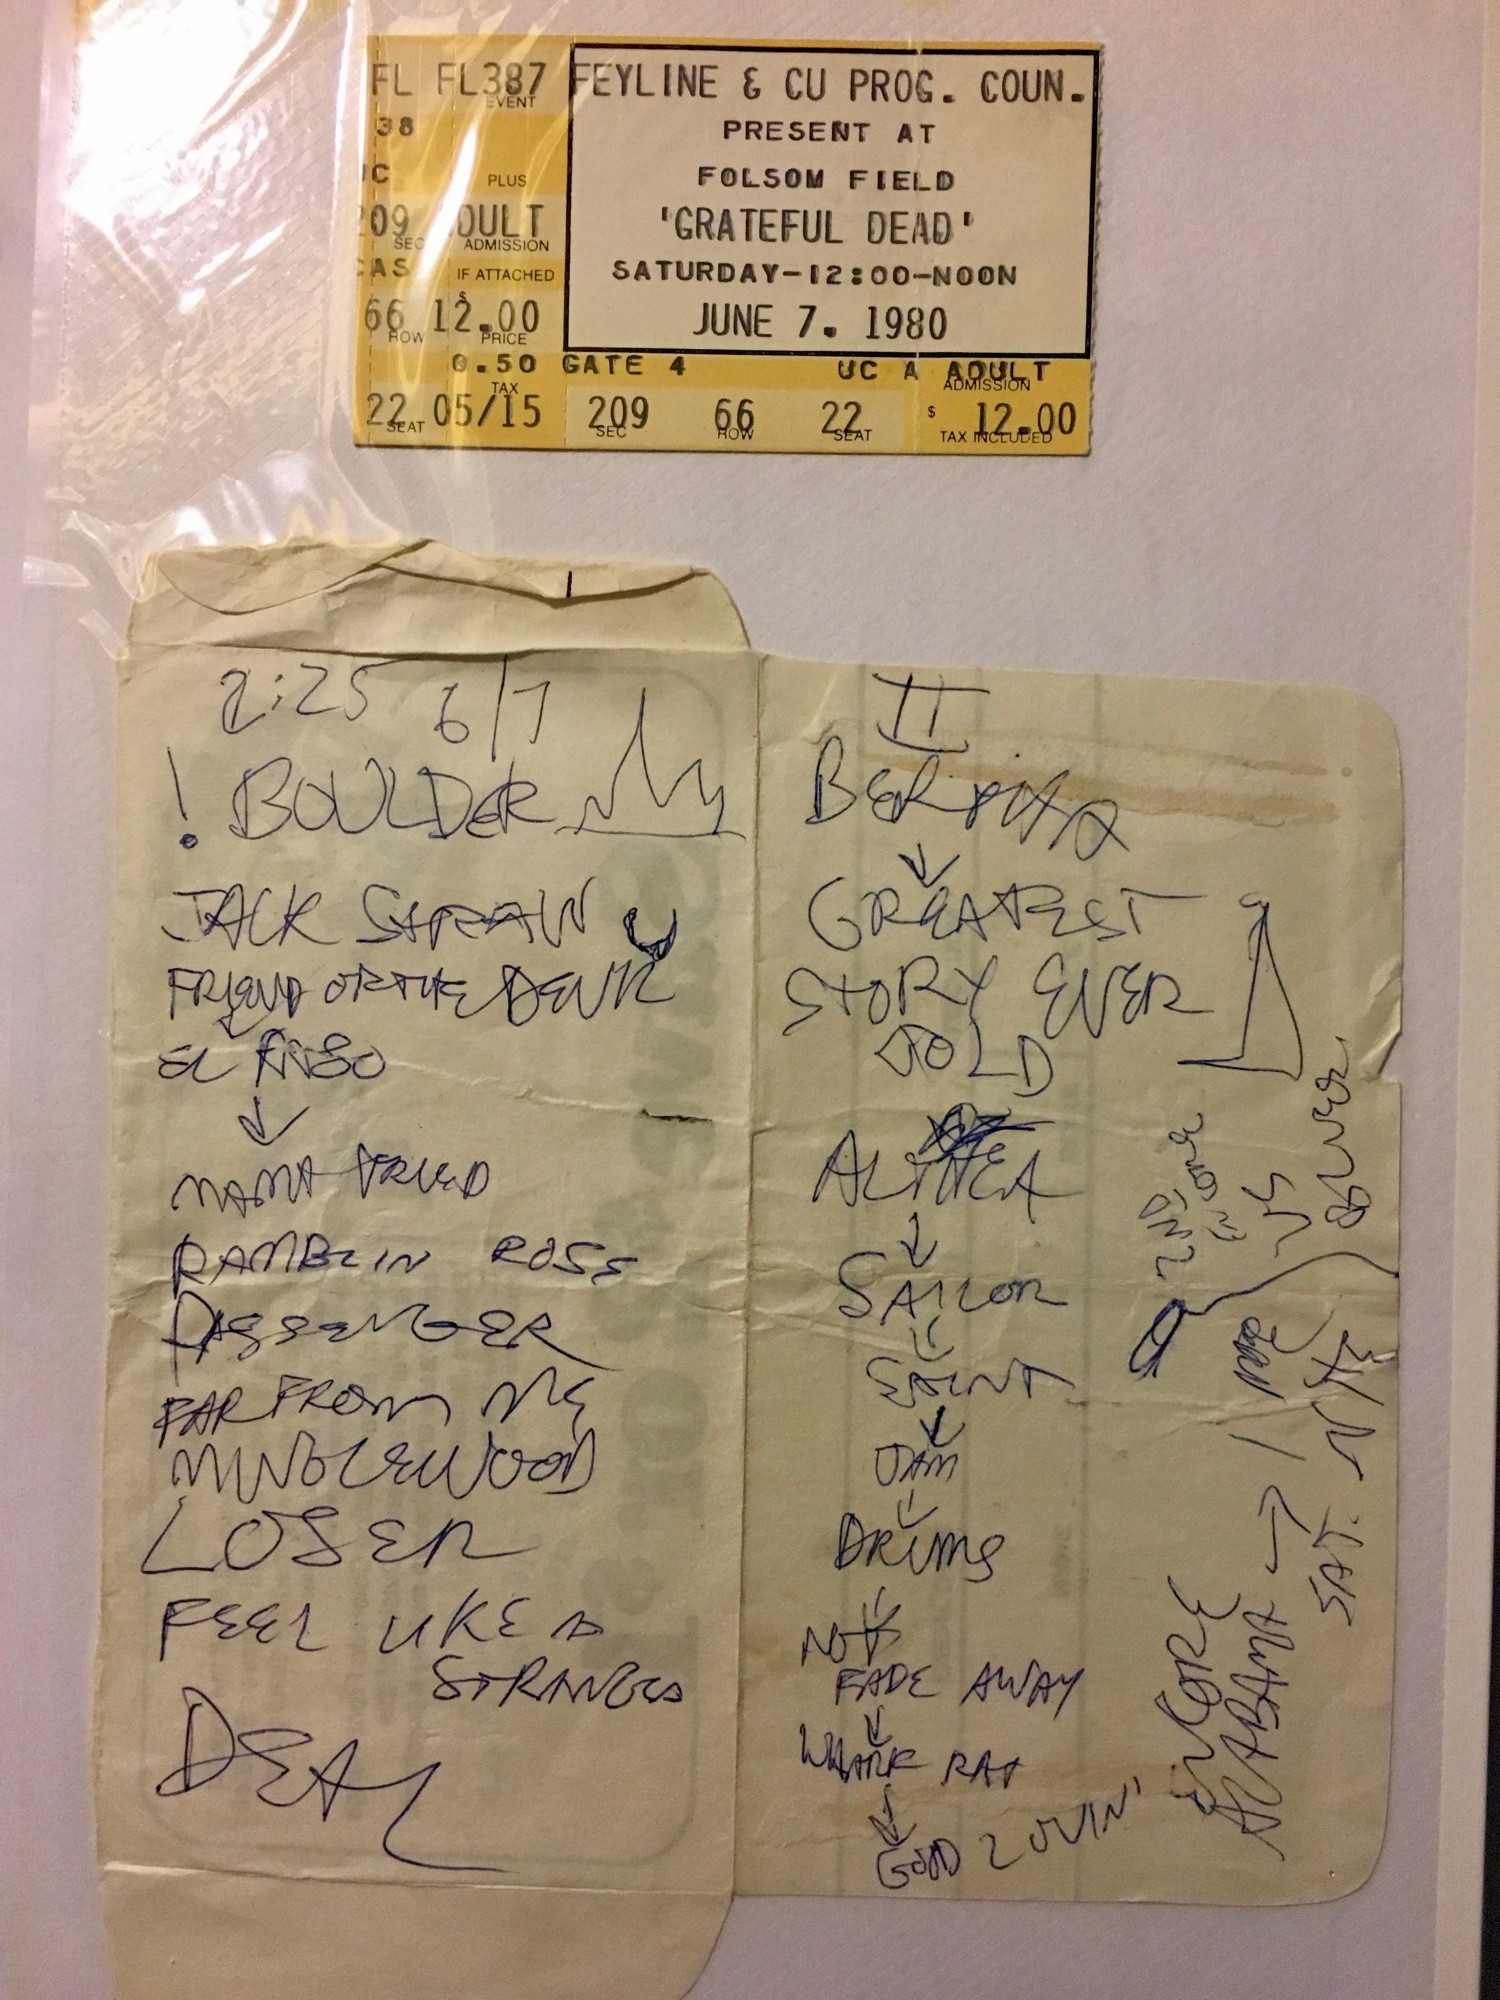 FL FL387
EVENT
38
UC PLUS
209 ADULT
SEC ADMISSION
CAS IF ATTACHED
$
66 12.00
ROW PRICE
0.50
TAX
22 05/15
SEAT
FEYLINE & CU PROG. COUN.
PRESENT AT
FOLSOM FIELD
'GRATEFUL DEAD'
SATURDAY-12:00-NOON
JUNE 7. 1980
GATE 4 UC A ADULT
ADMISSION
209 66 22 $ 12.00
SEC ROW SEAT TAX INCLUDED
2:25 6/7
! BOULDER
JACK STRAW
FRIEND OF THE DEVIL
EL PASO
MAMA TRIED
RAMBLIN ROSE
PASSENGER
FAR FROM ME
MINGLEWOOD
LOSER
FEEL LIKE A
STRANGER
DEAL
II
BERTHA
GREATEST
STORY EVER
TOLD
ALTHEA
SAILOR
SAINT
JAM
DRUMS
NOT
FADE AWAY
WHARF RAT
GOOD LOVIN'
ENCORE
ALABAMA → 1 MORE
SAT. NITE
2ND
ENCORE
US
BLUES